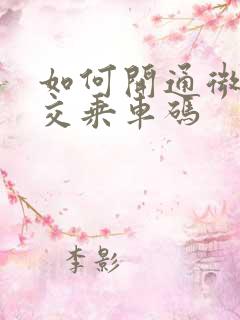 如何開通微
交乘車碼
李影